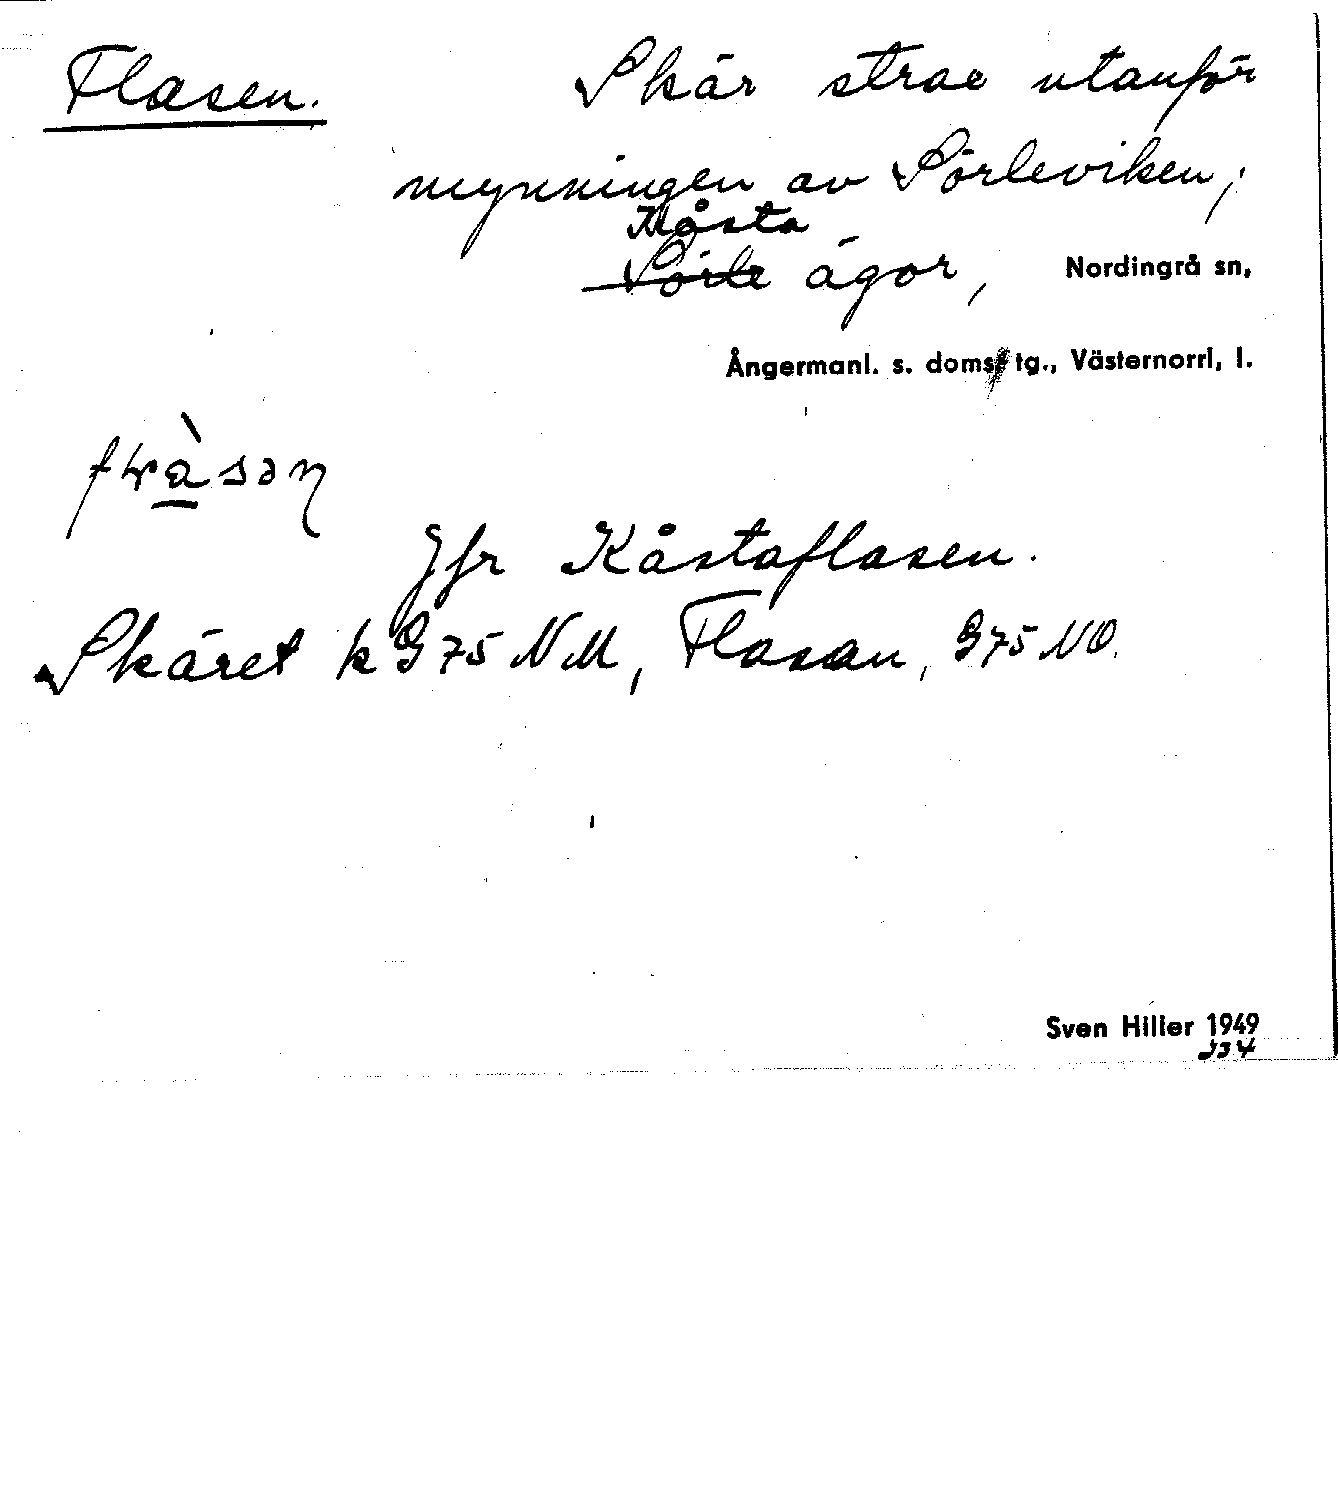 Flasen. Skär strax utanför
mynningen av Sörleviken,
Kåsta
Sörle ägor, Nordingrå sn,
Ångermanl. s. doms. tg., Västernorrl, l.
Jfr Kåstaflasen.
Skäret k G 75 NM, Flasan, G 75 NO.
Sven Hiller 1949